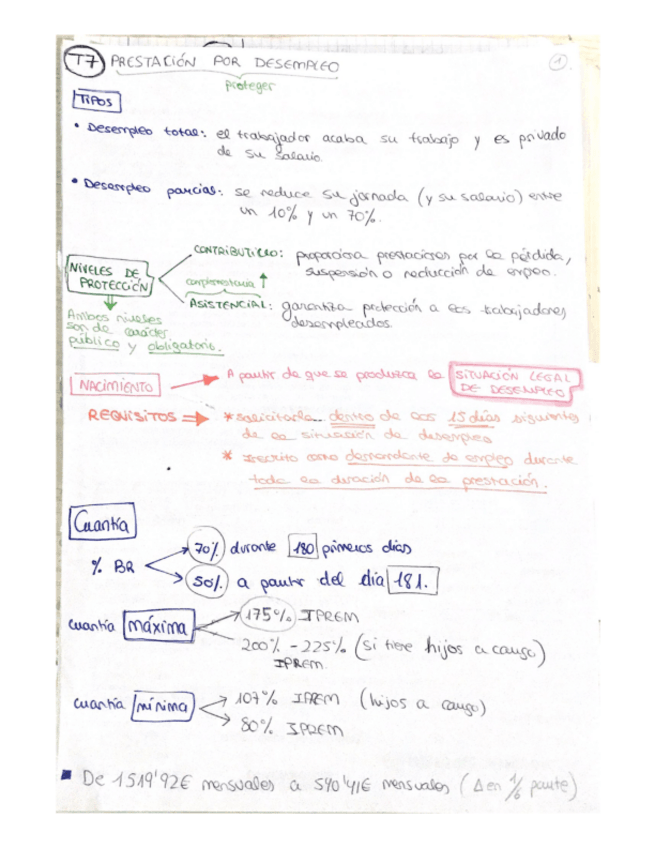 T7 PRESTACIÓN POR DESEMPLEO 1.
proteger
TIPOS
• Desempleo total: el trabajador acaba su trabajo y es privado
de su salario.
• Desempleo parcial: se reduce su jornada (y su salario) entre
un 10% y un 70%.
NIVELES DE
PROTECCIÓN
CONTRIBUTIVO: proporciona prestaciones por la pérdida,
suspensión o reducción de empleo.
complementaria ↑
ASISTENCIAL: garantiza protección a los trabajadores
desempleados.
Ambos niveles
son de carácter
público y obligatorio.
NACIMIENTO → A partir de que se produzca la SITUACIÓN LEGAL
DE DESEMPLEO
REQUISITOS ⇒ * solicitarla dentro de los 15 días siguientes
de la situación de desempleo
* Inscrito como demandante de empleo durante
toda la duración de la prestación.
Cuantía
% BR
70% durante 180 primeros días
50% a partir del día 181.
cuantía máxima
175% IPREM
200% - 225% (si tiene hijos a cargo)
IPREM
cuantía mínima
107% IPREM (hijos a cargo)
80% IPREM
▪ De 1519'92€ mensuales a 540'41€ mensuales (Δ en 1/6 parte)